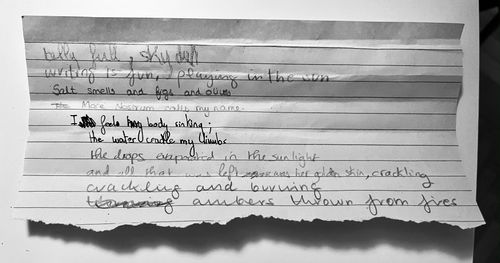 belly full, sky
writing is fun, playing in the sun
Salt smells and figs and olives
The Mare Nostrum calls my name.
I feel my body sinking:
the water cradle my limbs
the drops evaporated in the sunlight
and all that was left was her golden skin, crackling
crackling and burning
embers thrown from fires